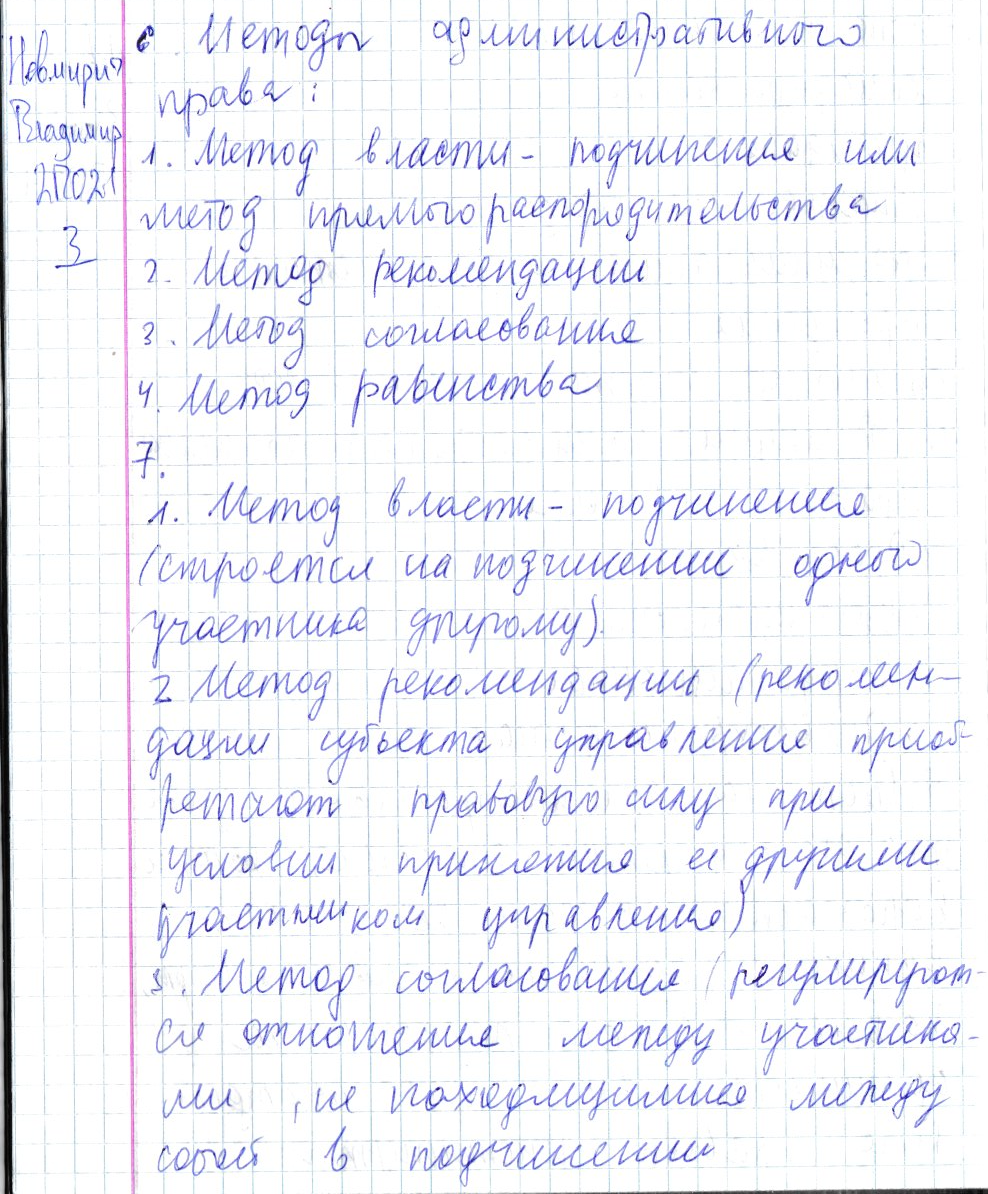 Владимир
2ПО21
3
6. Методы административного
права:
1. Метод власти - подчинения или
метод прямого распорядительства
2. Метод рекомендации
3. Метод согласования
4. Метод равенства
7.
1. Метод власти - подчинения
(строется на подчинении одного
участника другому).
2 Метод рекомендации (рекомен-
дации субъекта управления приоб-
ретают правовую силу при
условии принятия её другими
участником управления)
3. Метод согласования (регулируют-
ся отношения между участника-
ми, не находящимися между
собой в подчинении